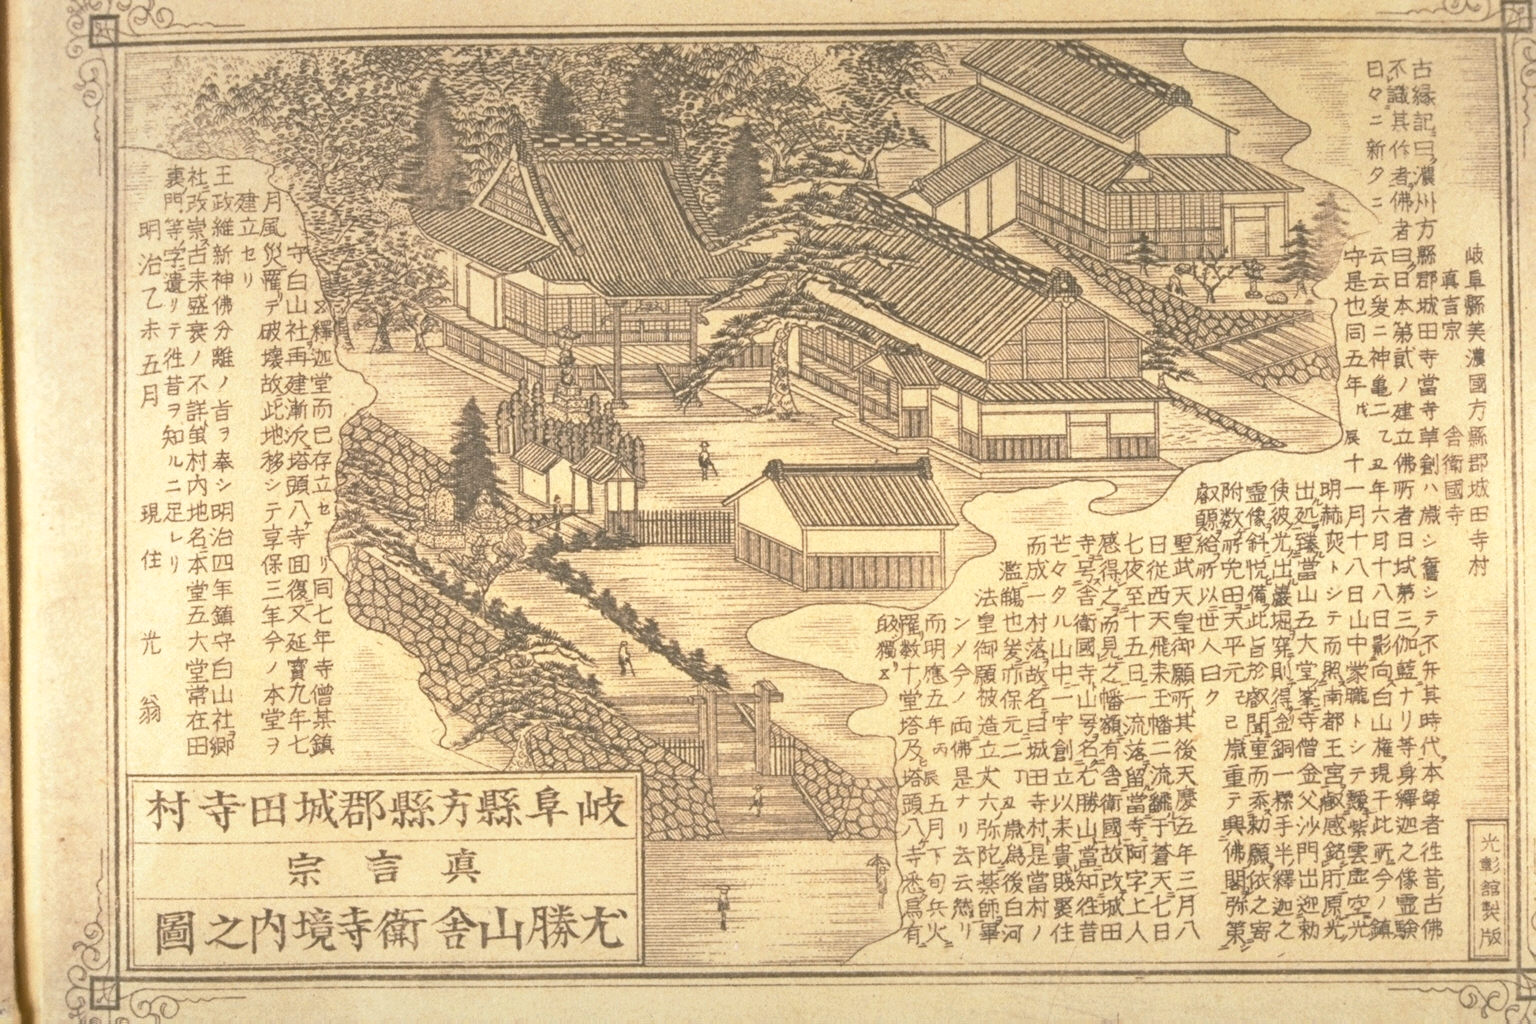 岐阜縣美濃國方縣郡城田寺村
真言宗　舎衛國寺
古縁記曰濃州方縣郡城田寺當寺草創ハ歳シ舊シテ不弁其時代本尊者往昔古佛
不識其作者佛者曰日本第貳ノ建立佛所者日域第三伽藍ナリ等身釋迦之像霊験
日々ニ新タニ云云爰ニ神亀二乙丑年六月十八日影向白山権現干此所今ノ鎮
守是也同五年戊辰十一月十八日山中蒙朧トシテ靉紫雲虚空光
明赫灾トシテ而照南都王宮叡感銘肝原光
出処臻當山五大堂峯寺僧金父沙門出迎勅
使彼光出巌堀穿則得金銅一㩲手半釋迦之
霊像斜悦備此旨於叡聞重而奉勅願依之寄
附数所免田天平元己巳歳重テ興佛閣弥第
叡願給所以世人曰ク
聖武天皇御願所其後天慶五年三月八
日従西天飛来王幡二流飜于蒼天七日
七夜至十五日一流落留當寺阿字上人
感得之而見之幡額有舎衛國故改城田
寺号舎衛國寺山号名尤勝山當知往昔
芒々タル山中一宇創立以来貴賤褁住
而成一村落故名曰城田寺村是當村ノ
濫觴也爰亦保元二丁丑歳為後白河
法皇御願被造立丈六弥陀薬師畢
ンメ今ノ両佛是ナリ云云然リ
而明應五年丙辰五月下旬兵火
罹数十堂塔及塔頭八寺悉烏有
皈獨
釋迦堂而已存立セリ同七年寺僧某鎮
守白山社再建漸次塔頭八ケ寺回復又延寶九年七
月風災罹テ破壊故此地移シテ享保三年今ノ本堂ヲ
建立セリ
王政維新神佛分離ノ旨ヲ奉シ明治四年鎮守白山社郷
社改崇古来盛衰ノ不詳蛍村内地名本堂五大堂常在田
裏門等字遺リテ徃昔ヲ知ルニ足レリ
明治乙未五月　現住　光翁
光彰館製版
岐阜縣方縣郡城田寺村
真言宗
尤勝山舎衛寺境内之圖